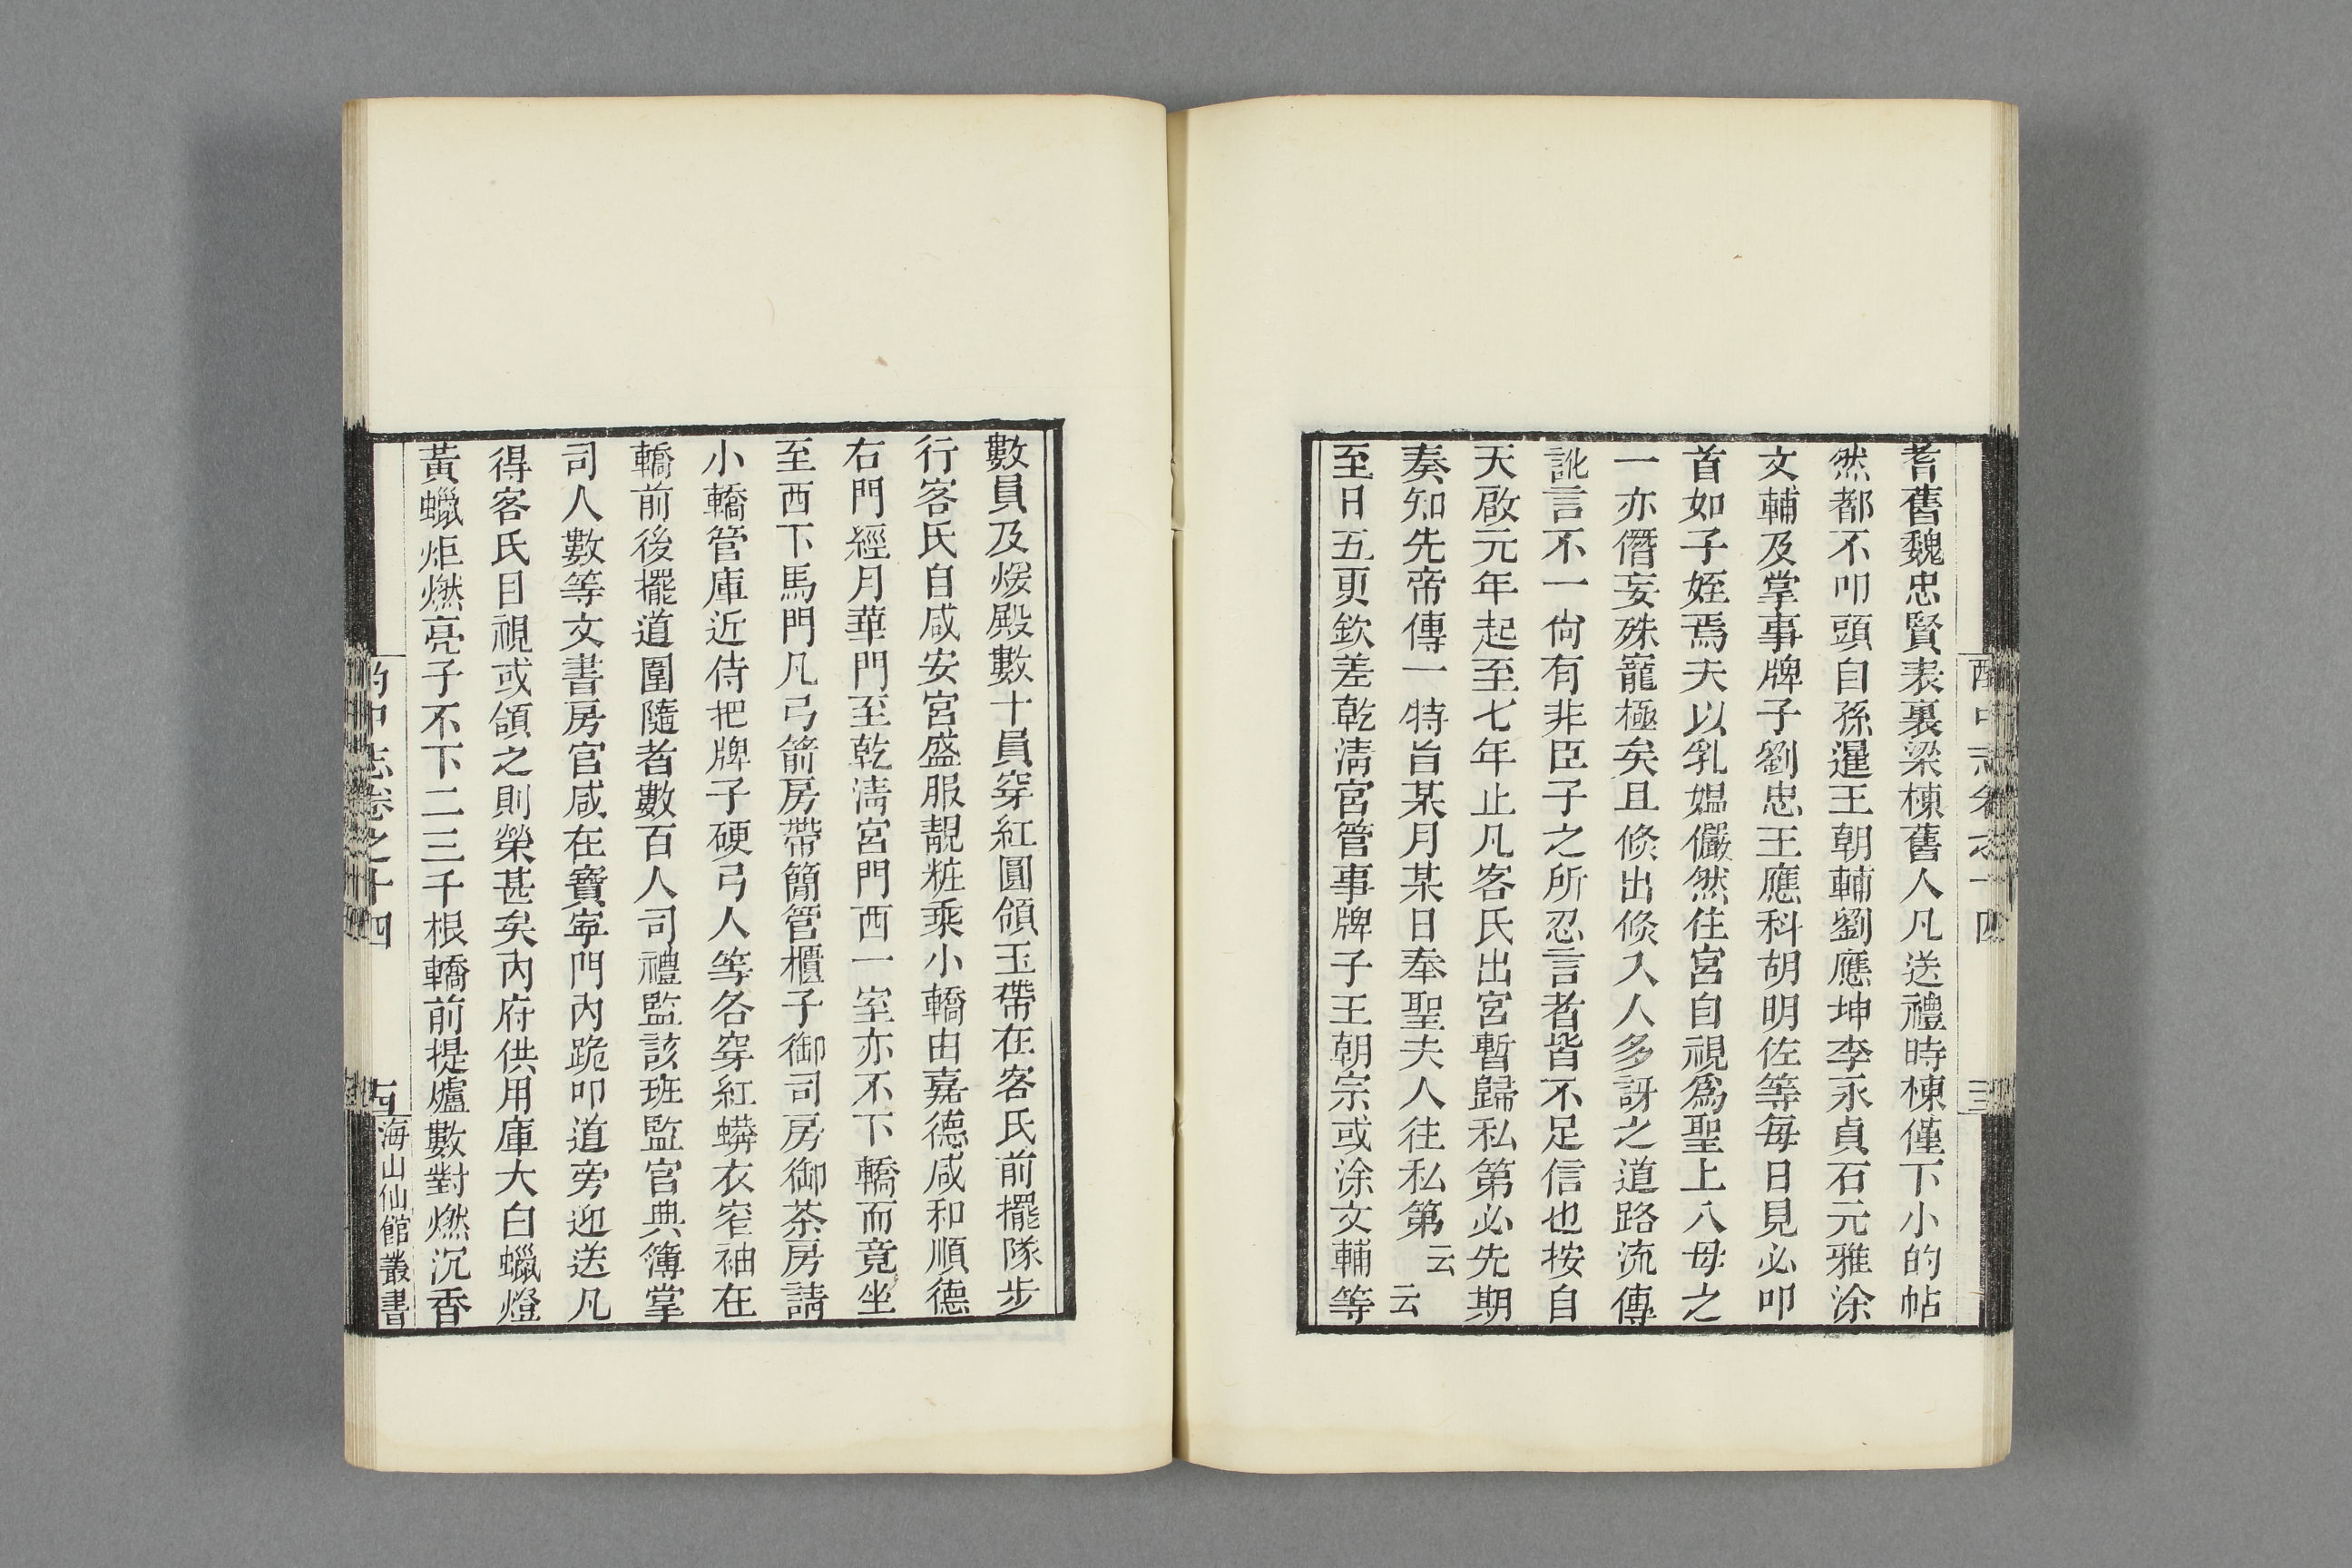 酌中志卷之十四
三
耆舊魏忠賢表裏梁棟舊人凡送禮時棟僅下小的帖
然都不叩頭自孫暹王朝輔劉應坤李永貞石元雅涂
文輔及掌事牌子劉忠王應科胡明佐等每日見必叩
首如子姪焉夫以乳媼儼然住宮自視為聖上八母之
一亦僭妄殊寵極矣且倐出倐入人多訝之道路流傳
訛言不一尙有非臣子之所忍言者皆不足信也按自
天啟元年起至七年止凡客氏出宮暫歸私第必先期
奏知先帝傳一特旨某月某日奉聖夫人往私第云云
至日五更欽差乾淸宮管事牌子王朝宗或涂文輔等
數員及煖殿數十員穿紅圓領玉帶在客氏前擺隊步
行客氏自咸安宮盛服靚粧乘小轎由嘉德咸和順德
右門經月華門至乾淸宮門西一室亦不下轎而竟坐
至西下馬門凡弓箭房帶簡管櫃子御司房御茶房請
小轎管庫近侍把牌子硬弓人等各穿紅蟒衣窄袖在
轎前後擺道圍隨者數百人司禮監該班監官典簿掌
司人數等文書房官咸在寶寧門內跪叩道旁迎送凡
得客氏目視或頷之則榮甚矣內府供用庫大白蠟燈
黃蠟炬燃亮子不下二三千根轎前提爐數對燃沉香
酌中志卷之十四
海山仙館叢書